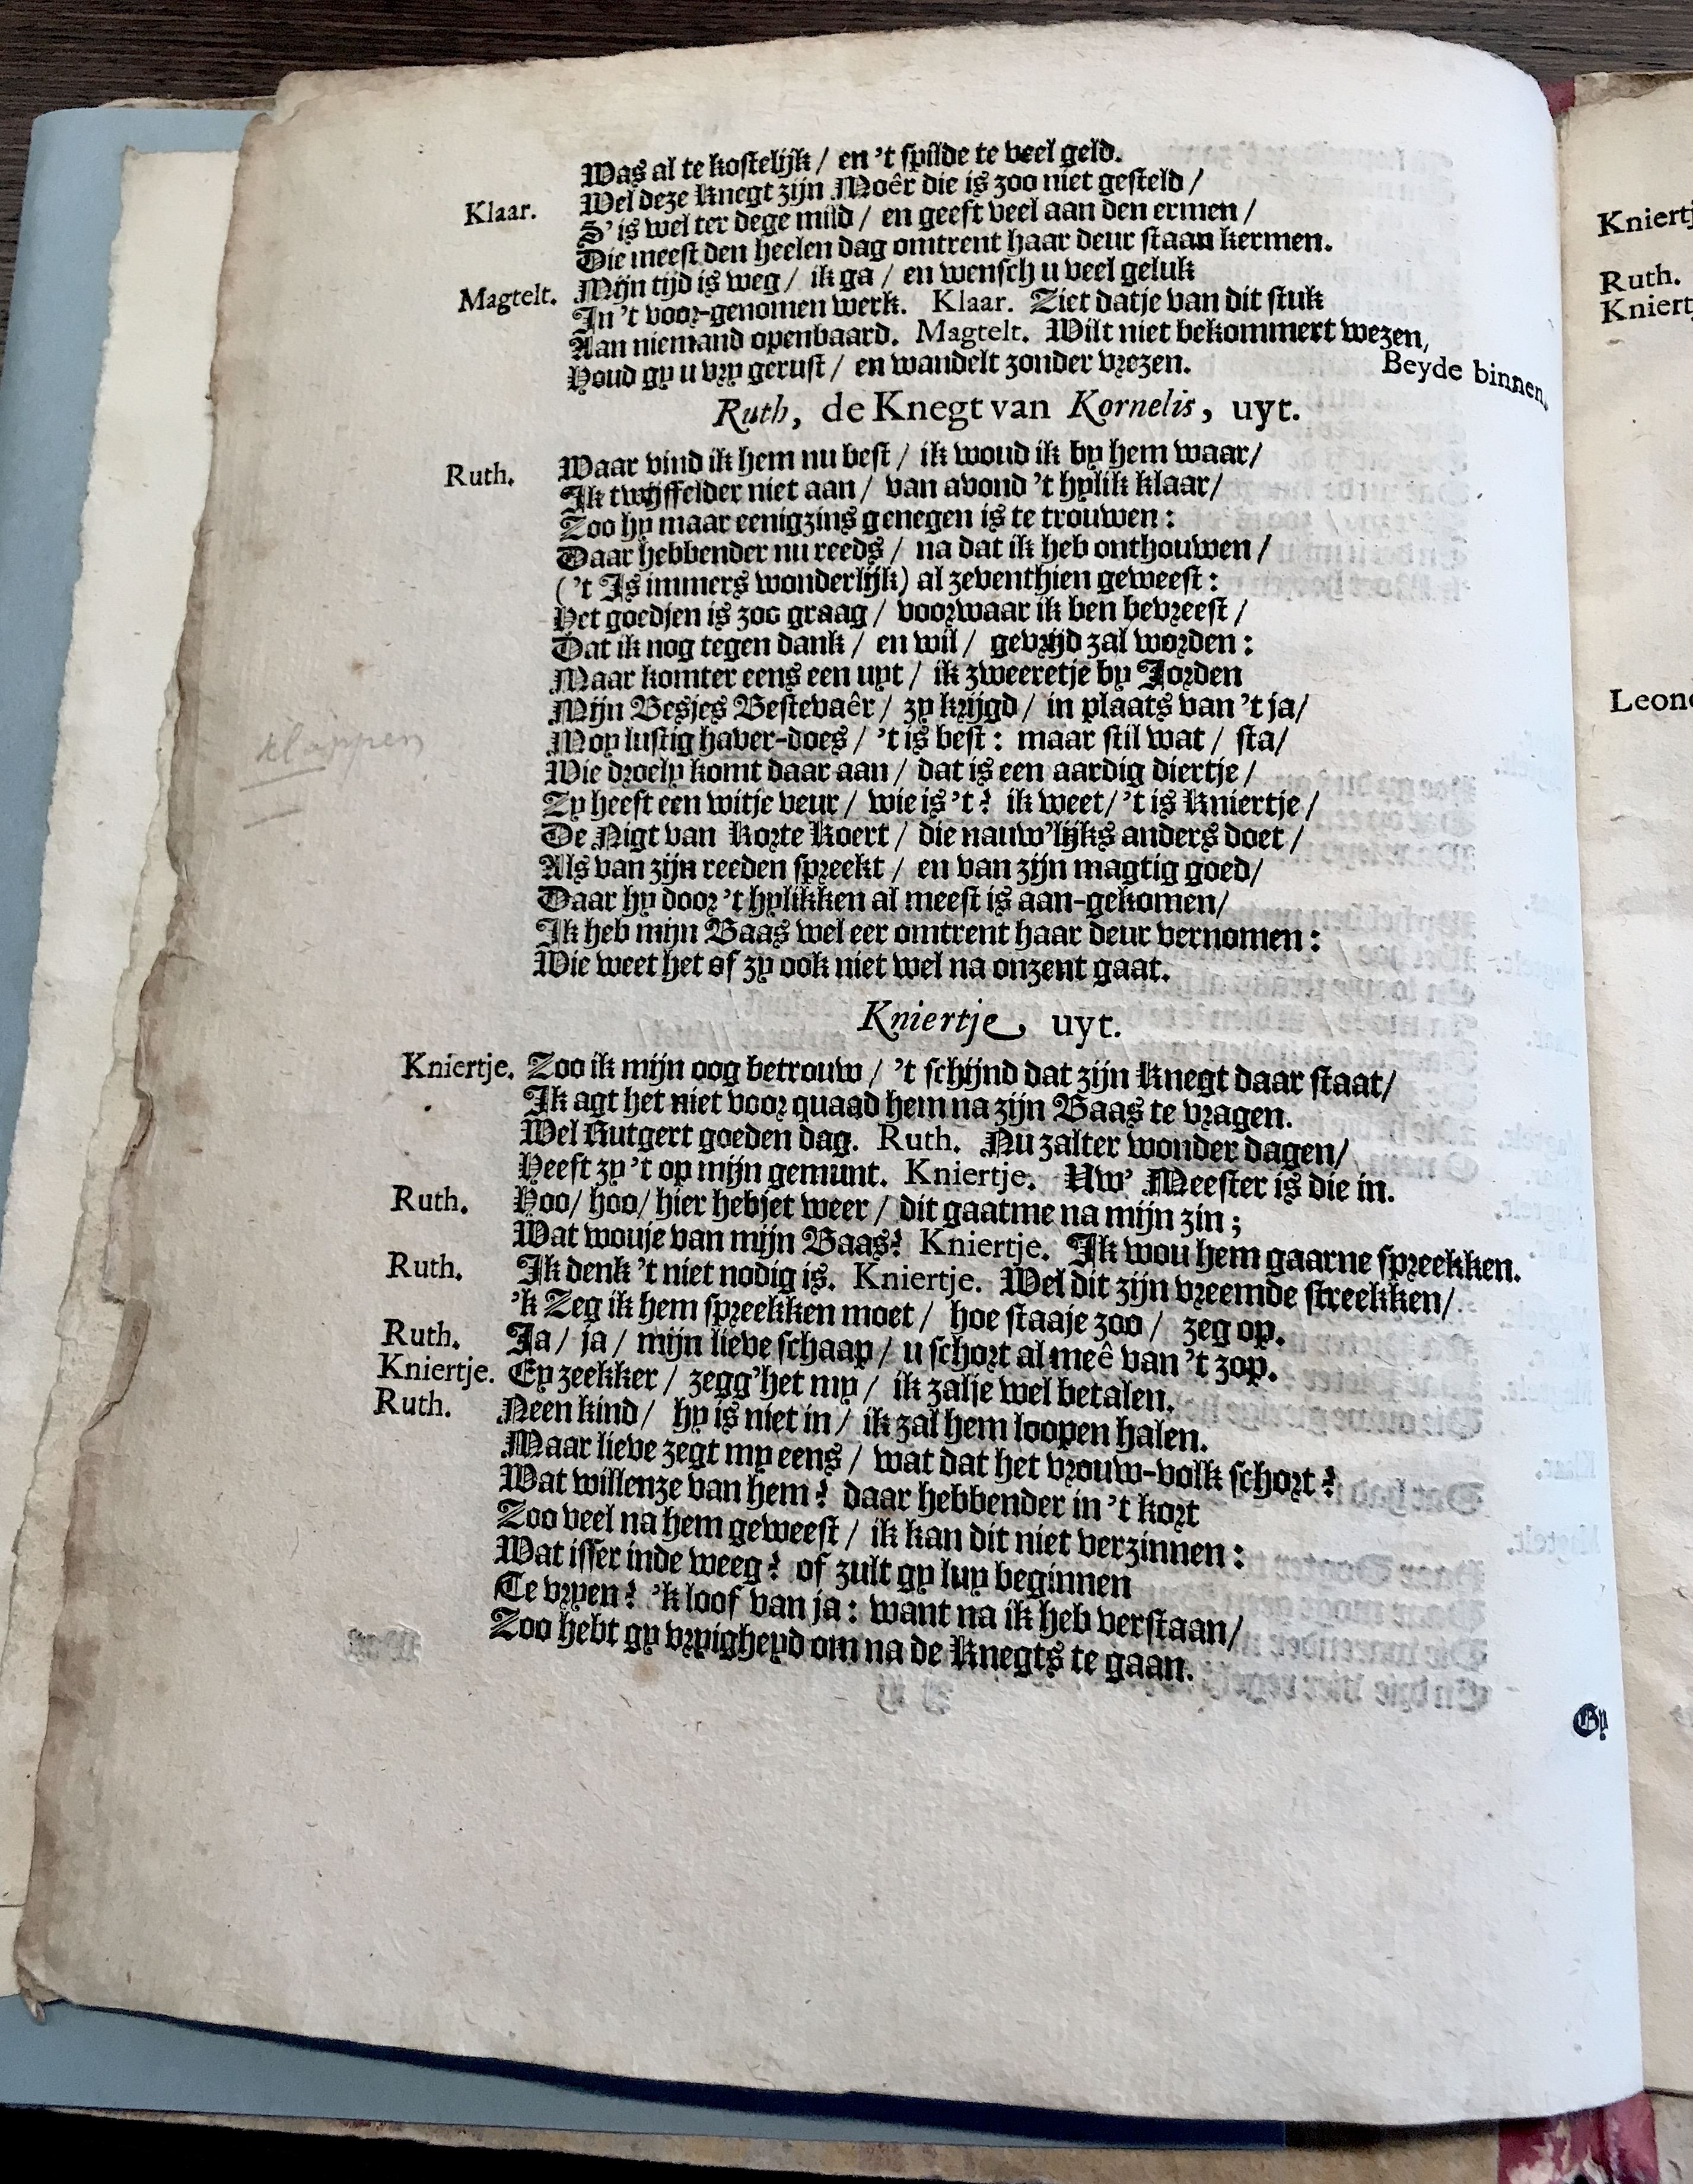 Was al te kostelijk / en 't spilde te veel geld.
Klaar. Wel deze Knegt zijn Moêr die is zoo niet gesteld /
S' is wel ter dege mild / en geeft veel aan den ermen /
Die meest den heelen dag omtrent haar deur staan kermen.
Magtelt. Mijn tijd is weg / ik ga / en wensch u veel geluk
In 't voor-genomen werk. Klaar. Ziet datje van dit stuk
Aan niemand openbaard. Magtelt. Wilt niet bekommert wezen,
Houd gy u vry gerust / en wandelt zonder vrezen.
Beyde binnen.
Ruth, de Knegt van Kornelis, uyt.
Ruth. Waar vind ik hem nu best / ik woud ik by hem waar /
Ik twijffelder niet aan / van avond 't hylik klaar /
Zoo hy maar eenigzins genegen is te trouwen :
Daar hebbender nu reeds / na dat ik heb onthouwen /
('t Is immers wonderlijk) al zeventhien geweest :
Het goedjen is zoo graag / voorwaar ik ben bevreest /
Dat ik nog tegen dank / en wil / gevrijd zal worden :
Maar komter eens een uyt / ik zweeretje by Jorden
Mijn Besjes Bestevaêr / zy krijgd / in plaats van 't ja /
Moy lustig haver-does / 't is best : maar stil wat / sta /
klappen
Wie droely komt daar aan / dat is een aardig diertje /
Zy heeft een witje veur / wie is 't? ik weet / 't is Kniertje /
De Nigt van Korte Koert / die nauw'lijks anders doet /
Als van zijn reeden spreekt / en van zijn magtig goed /
Daar hy door 't hylikken al meest is aan-gekomen /
Ik heb mijn Baas wel eer omtrent haar deur vernomen :
Wie weet het of zy ook niet wel na onzent gaat.
Kniertje uyt.
Kniertje. Zoo ik mijn oog betrouw / 't schijnd dat zijn Knegt daar staat /
Ik agt het niet voor quaad hem na zijn Baas te vragen.
Wel Rutgert goeden dag. Ruth. Nu zalter wonder dagen /
Heeft zy 't op mijn gemunt. Kniertje. Uw' Meester is die in.
Ruth. Hoo / hoo / hier hebjet weer / dit gaatme na mijn zin ;
Wat wouje van mijn Baas? Kniertje. Ik wou hem gaarne spreekken.
Ruth. Ik denk 't niet nodig is. Kniertje. Wel dit zijn vreemde streekken /
'k Zeg ik hem spreekken moet / hoe staaje zoo / zeg op.
Ruth. Ja / ja / mijn lieve schaap / u schort al meê van 't zop.
Kniertje. Ey zeekker / zegg'het my / ik zalje wel betalen.
Ruth. Neen kind / hy is niet in / ik zal hem loopen halen.
Maar lieve zegt my eens / wat dat het vrouw-volk schort?
Wat willenze van hem? daar hebbender in 't kort
Zoo veel na hem geweest / ik kan dit niet verzinnen :
Wat isser inde weeg? of zult gy luy beginnen
Te vryen? 'k loof van ja : want na ik heb verstaan /
Zoo hebt gy vryigheyd om na de Knegts te gaan.
Gy
Ruth.